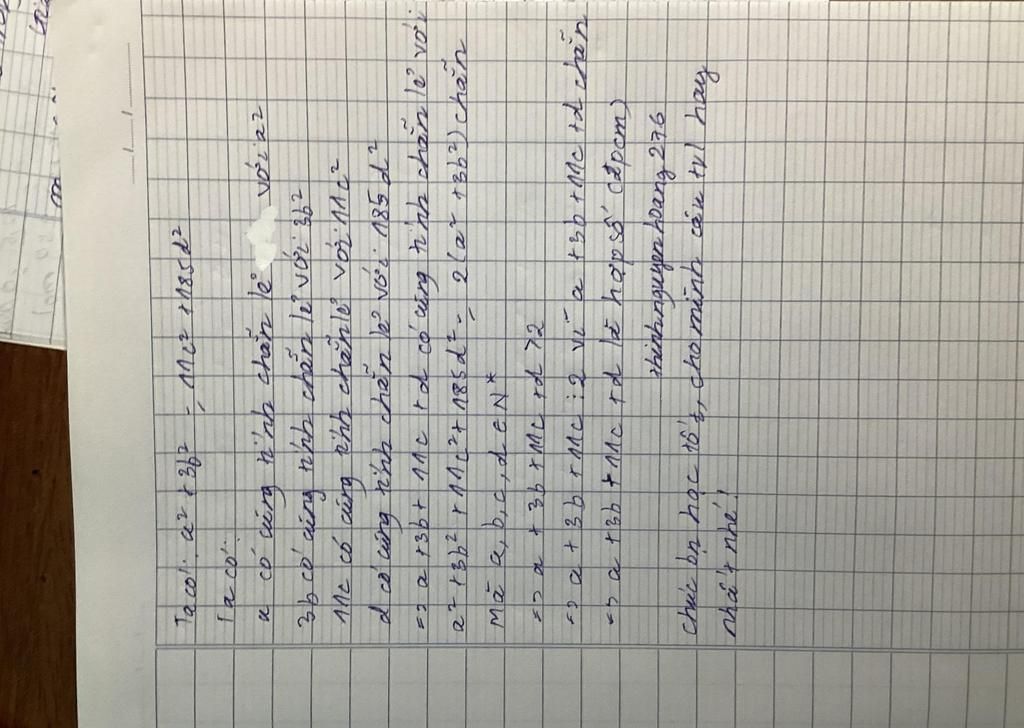 Ta có: a² + 3b² = 11c² + 185d²
Ta có:
a có cùng tính chẵn lẻ với a²
3b có cùng tính chẵn lẻ với 3b²
11c có cùng tính chẵn lẻ với 11c²
d có cùng tính chẵn lẻ với 185d²
=> a + 3b + 11c + d có cùng tính chẵn lẻ với
a² + 3b² + 11c² + 185d² = 2(a² + 3b²) chẵn
Mà a, b, c, d ∈ N*
=> a + 3b + 11c + d > 2
=> a + 3b + 11c ⋮ 2 vì a + 3b + 11c + d chẵn
=> a + 3b + 11c + d là hợp số (đpcm)
thinhnguyenhoang276
Chúc bn học tốt, cho mình câu tvl hay
nhất nhé!